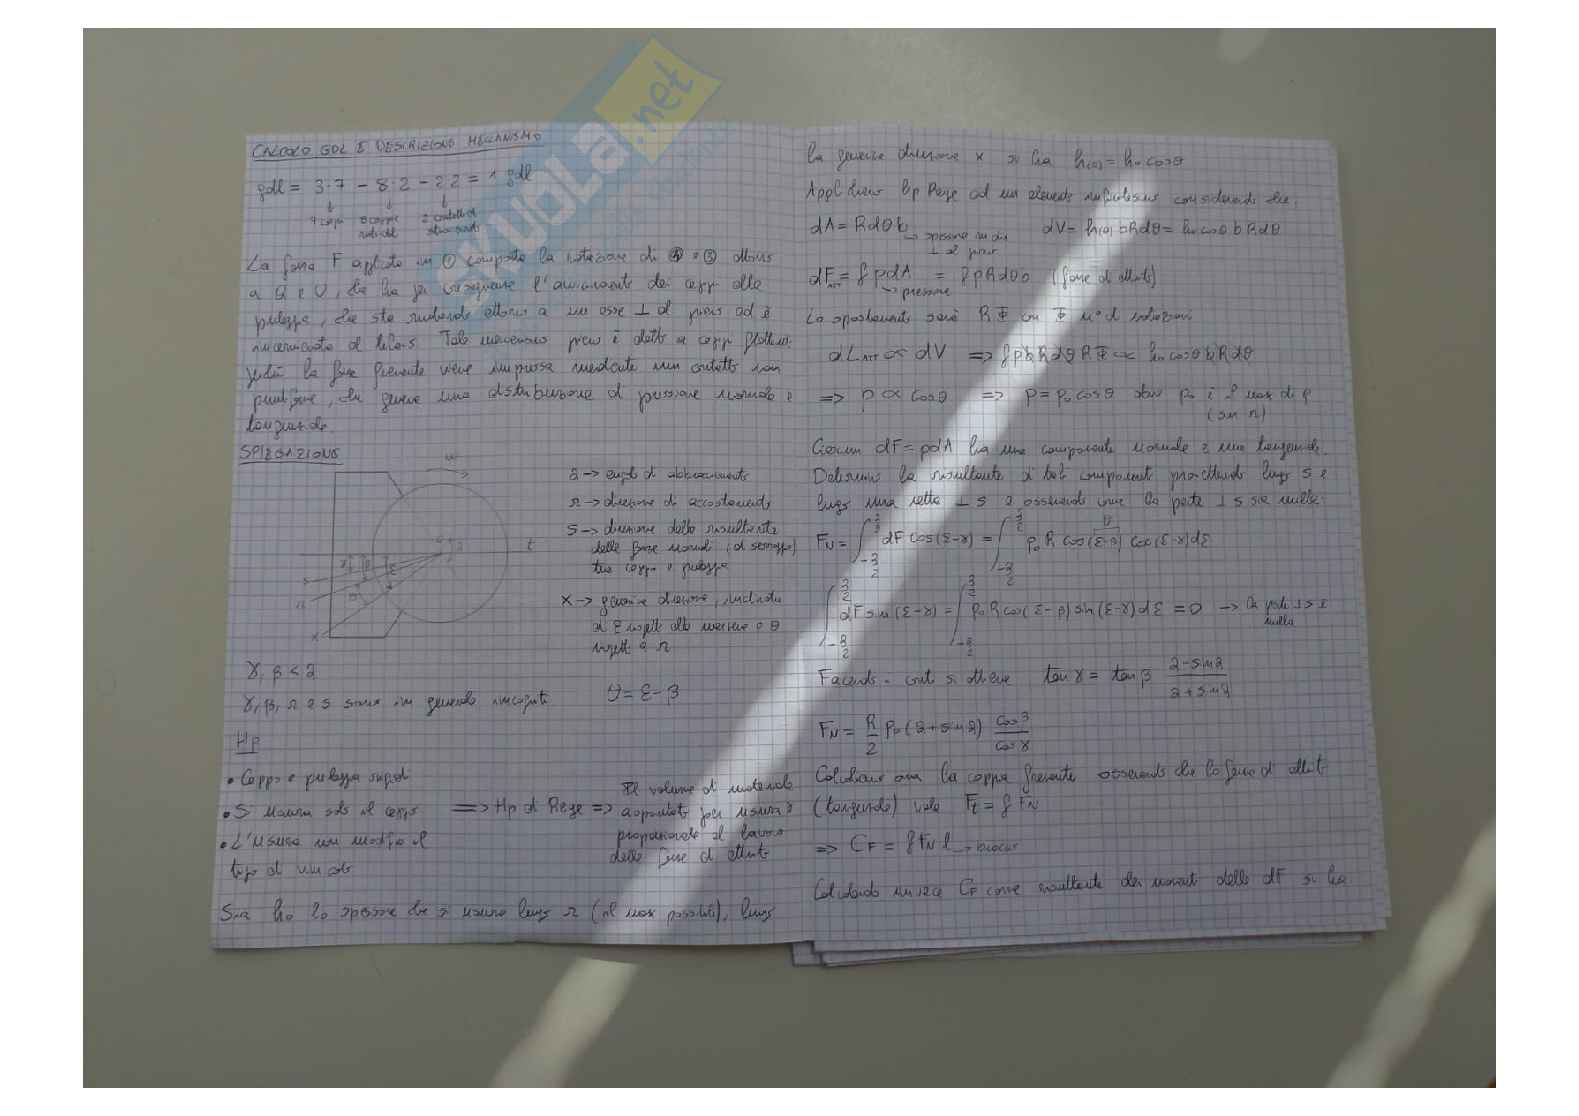 SKUOLA.net
CALCOLO GDL E DESCRIZIONE MECCANISMO
gdl = 3·7 - 8·2 - 2·2 = 1 gdl
7 corpi 8 coppie rotoidali 2 contatti di strisciamento
La forza F applicata in ① comporta la rotazione di ④ e ③ attorno
a Q e V, che ha per conseguenza l'avvicinamento dei ceppi alla
puleggia, che sta ruotando attorno a un asse ⊥ al piano ed è
incernierata al telaio. Tale meccanismo piano è detto a ceppi
la forza frenante viene impressa mediante un contatto non
puntiforme, che genera una distribuzione di pressione normale e
tangenziale.
SPIEGAZIONE
ω
t
s
r
x
a → angolo di abbracciamento
r → direzione di accostamento
s → direzione della risultante
delle forze normali (di serraggio)
tra ceppo e puleggia
x → generica direzione, inclinata
di ε rispetto alla mezzeria e θ
rispetto a r
γ, β < a
γ, β, r e s sono in generale incognite
θ = ε - β
Hp
• Ceppo e puleggia rigidi
• Si usura solo il ceppo
• L'usura non modifica il
tipo di vincolo
⟹ Hp di Reye ⟹
Il volume di materiale
asportato per usura è
proporzionale al lavoro
delle forze di attrito
Sia h₀ lo spessore che si usura lungo r (il max possibile), lungo
la generica direzione x si ha h(θ) = h₀ cosθ
Applichiamo hp Reye ad un elemento infinitesimo considerando che:
dA = R dθ b
→ spessore
⊥ al piano
dV = h(θ) b R dθ = h₀ cosθ b R dθ
dF_ATT = f p dA = f p R dθ b (forze di attrito)
→ pressione
Lo spostamento sarà R Φ con Φ n° di rotazioni
dL_ATT ∝ dV ⟹ f p b R dθ R Φ ∝ h₀ cosθ b R dθ
⟹ p ∝ cosθ ⟹ p = p₀ cosθ dove p₀ è il max di p
(su r)
Ciascun dF = p dA ha una componente normale e una tangenziale.
Determino la risultante di tali componenti proiettando lungo s e
lungo una retta ⊥ s e osservando come la parte ⊥ s sia nulla:
F_N = ∫_{-a/2}^{a/2} dF cos(ε-γ) = ∫_{-a/2}^{a/2} p₀ R cos(ε-β) cos(ε-γ) dε
∫_{-a/2}^{a/2} dF sin(ε-γ) = ∫_{-a/2}^{a/2} p₀ R cos(ε-β) sin(ε-γ) dε = 0 → la parte ⊥ s è
nulla
Facendo i conti si ottiene tan γ = tan β (a - sin a)/(a + sin a)
F_N = R/2 p₀ (a + sin a) cos β/cos γ
Calcoliamo ora la coppia frenante osservando che la forza di attrito
(tangenziale) vale F_t = f F_N
⟹ C_F = f F_N l → braccio
Calcolando invece C_F come risultante dei momenti delle dF si ha